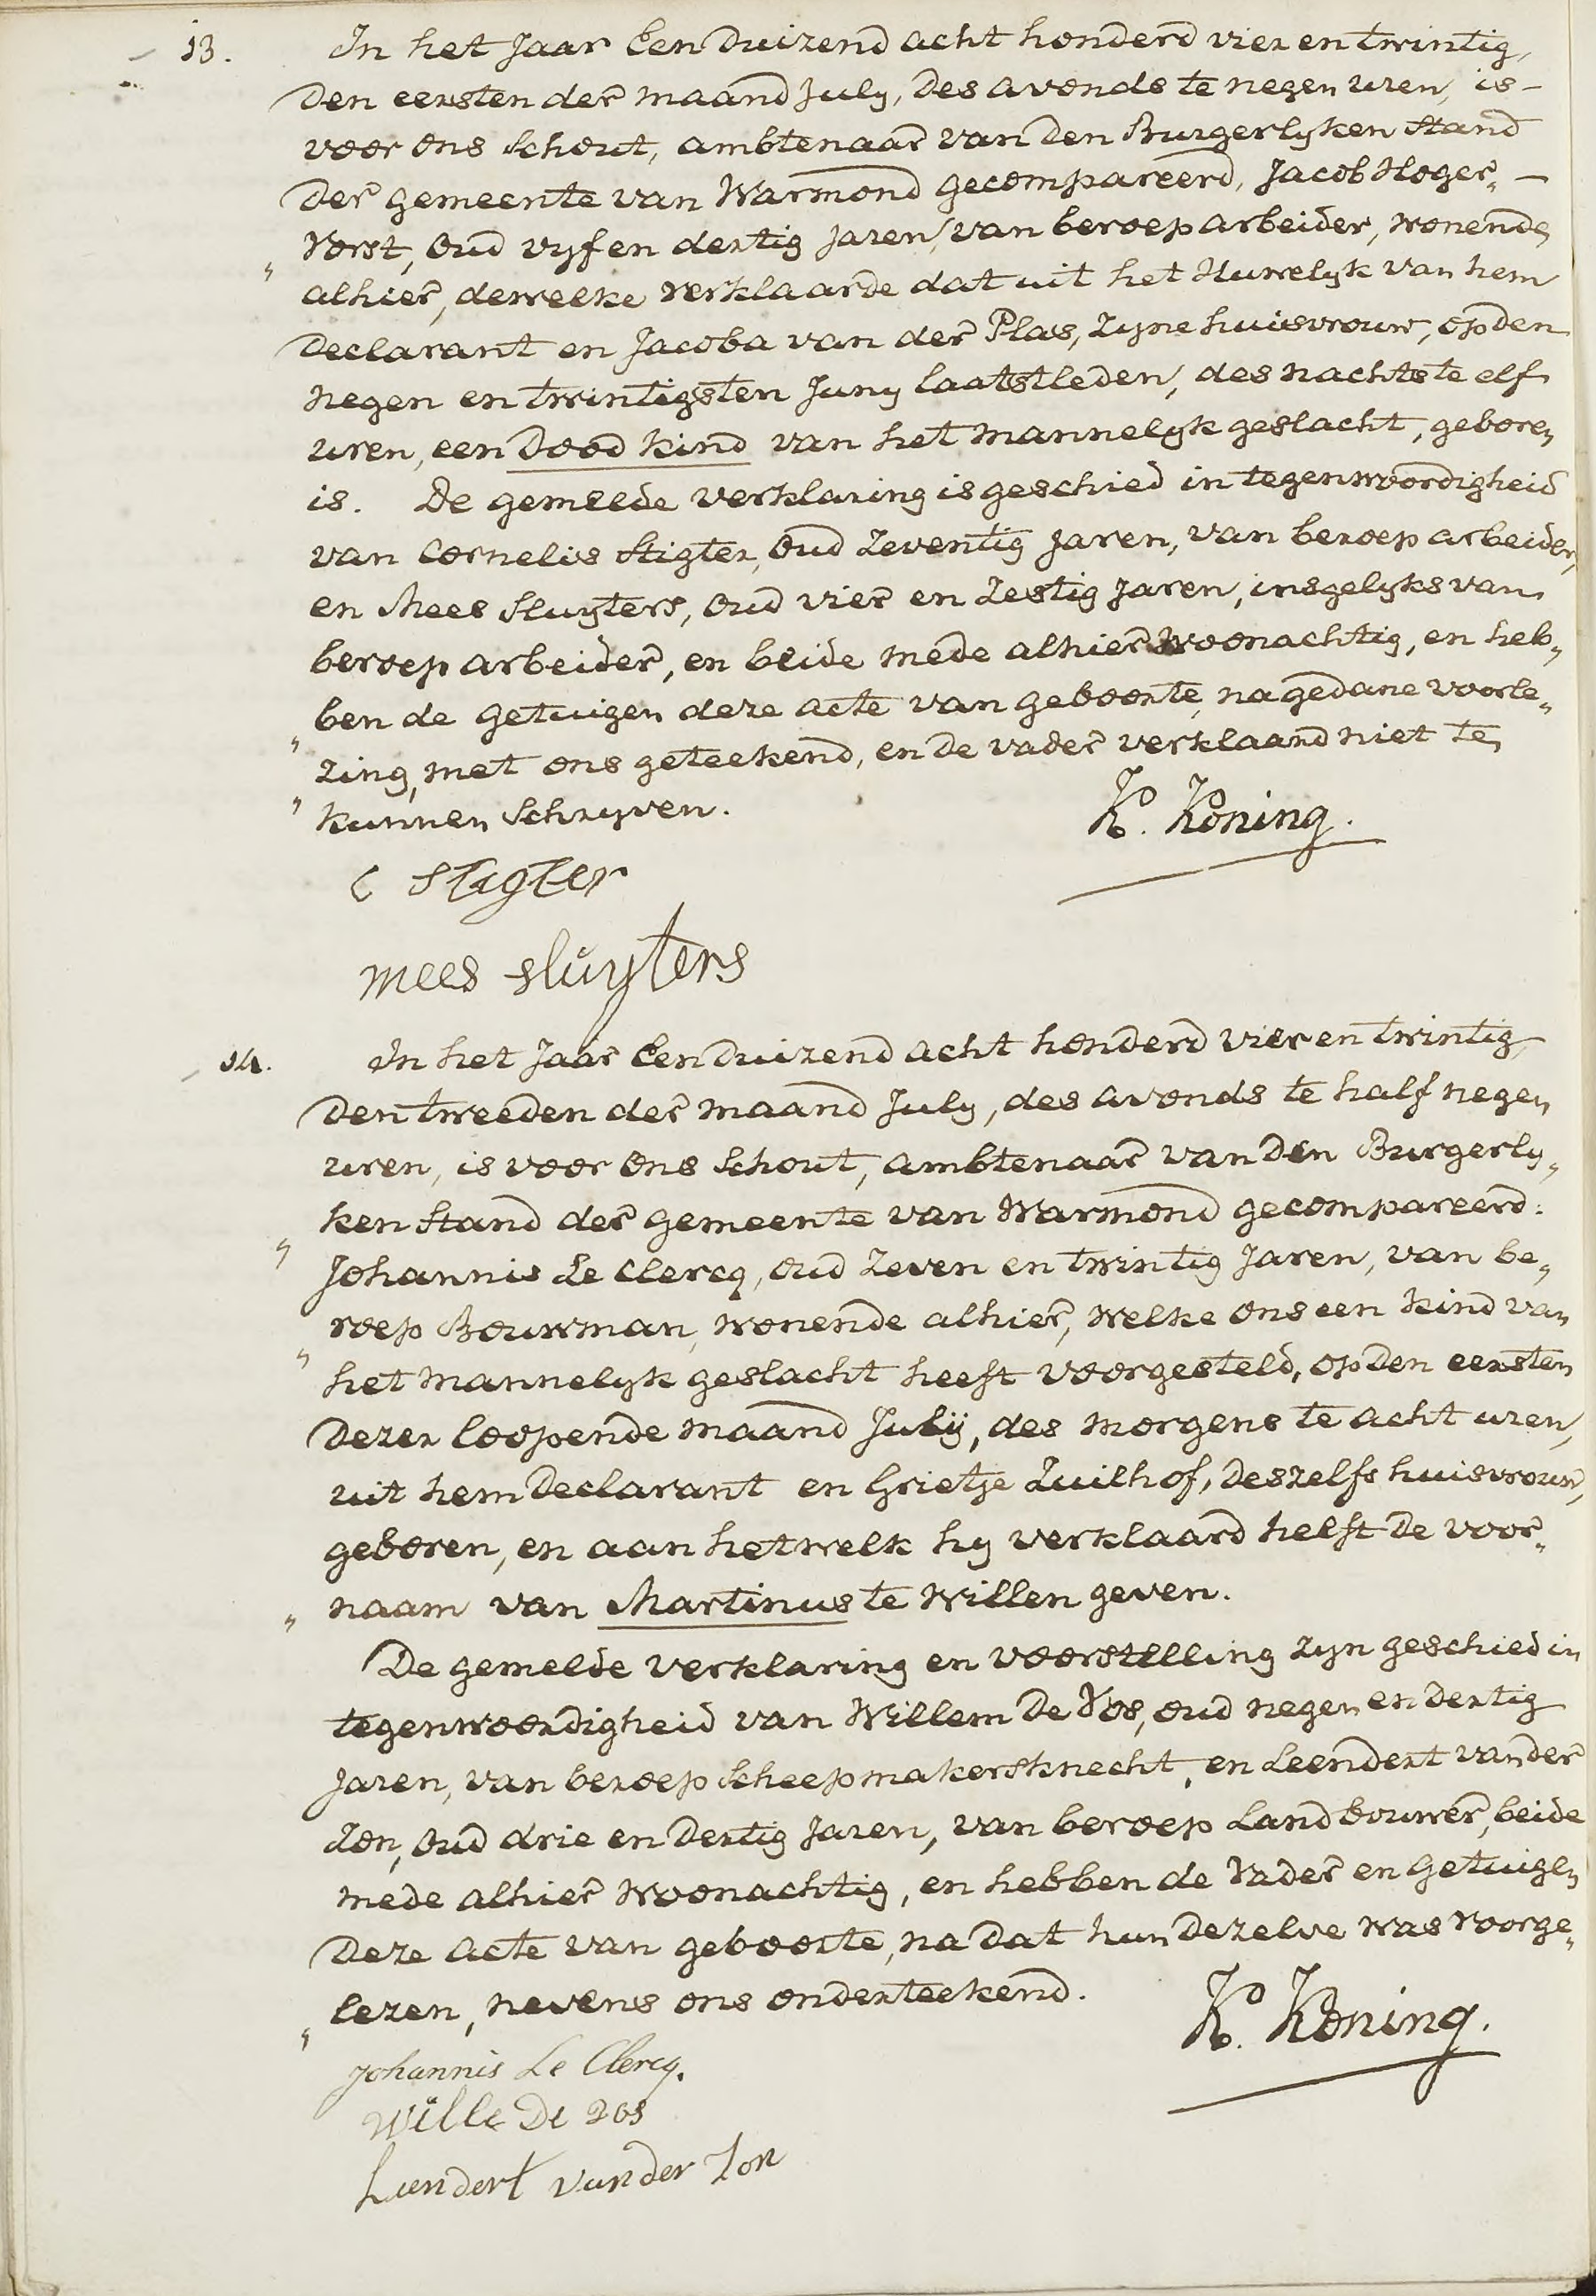 13. In het Jaar Een Duizend acht honderd vier en twintig,
Den eersten der maand July, des avonds te negen uren, is -
voor ons Schout, ambtenaar van den Burgerlyken Stand
der gemeente van Warmond gecompareerd, Jacob Hoger„ -
„ Vorst, Oud vyf en dertig jaren, van beroep arbeider, wonende
alhier, dewelke verklaarde dat uit het Huwelyk van hem
Declarant en Jacoba van der Plas, Zyne huisvrouw, op den
negen en twintigsten Juny laatstleden, des nachts te elf
uren, een Dood Kind van het mannelyk geslacht, geboren
is. De gemeede verklaring is geschied in tegenwoordigheid
van Cornelis Stigter, Oud Zeventig Jaren, van beroep arbeider,
en Mees Sluyters, Oud vier en Zestig Jaren, insgelyks van
beroep arbeider, en beide mede alhier woonachtig, en heb„
„ ben de getuigen deze acte van geboorte, na gedane voorle„
„ zing, met ons geteekend, en de vader verklaard niet te
kunnen Schryven.
K. Koning.
C Stigter
mees sluyters
14. In het Jaar Een Duizend acht honderd vier en twintig,
Den tweeden der maand July, des avonds te half negen
uren, is voor ons Schout, ambtenaar van den Burgerly„
„ ken Stand der gemeente van Warmond gecompareerd:
Johannis Le Clercq, oud Zeven en twintig Jaren, van be„
„ roep Bouwman, wonende alhier, welke ons een Kind van
het mannelyk geslacht heeft voorgesteld, op den eersten
dezer loopende maand July, des morgens te acht uren,
uit hem Declarant en Grietje Zuilhof, deszelfs huisvrouw,
geboren, en aan hetwelk hy verklaard heeft de voor„
„ naam van Martinus te willen geven.
De gemelde verklaring en voorstelling zyn geschied in
tegenwoordigheid van Willem De Vos, oud negen en dertig
Jaren, van beroep Scheepmakersknecht, en Leendert van der
Zon, Oud drie en dertig Jaren, van beroep Landbouwer, beide
mede alhier woonachtig, en hebben de Vader en Getuigen
Deze acte van geboorte, na dat hun dezelve was voorge„
„ lezen, nevens ons onderteekend.
K. Koning.
Johannis Le Clercq.
Wille De Vos
Leendert van der Zon